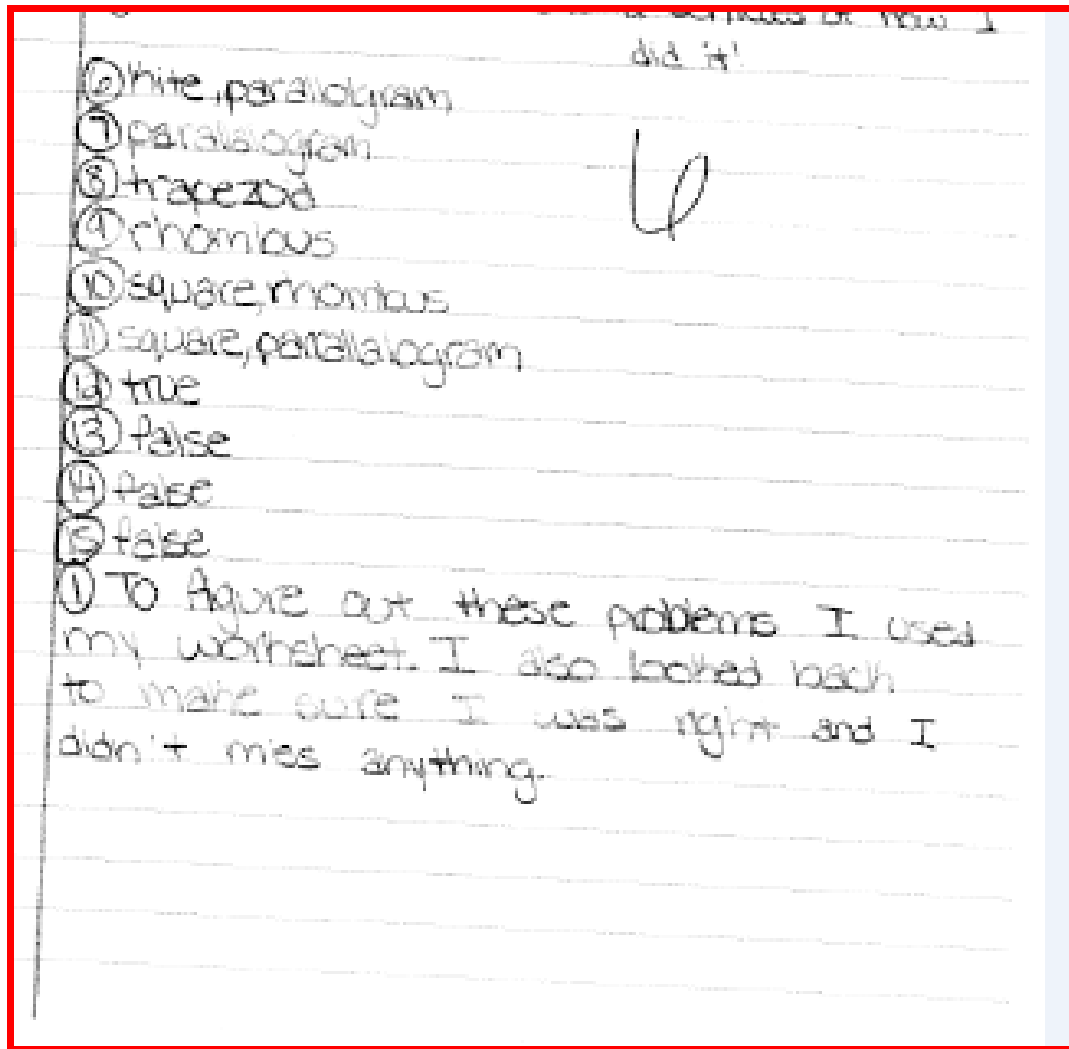 of how I
did it!
6 hite, parallogram
7 paralalogram
8 trapezod
9 rhombus
10 square, rhombus
11 square, parallalogram
12 true
13 false
14 false
15 false
1 To figure out these problems I used
my worksheet. I also looked back
to make sure I was right and I
didn't miss anything.